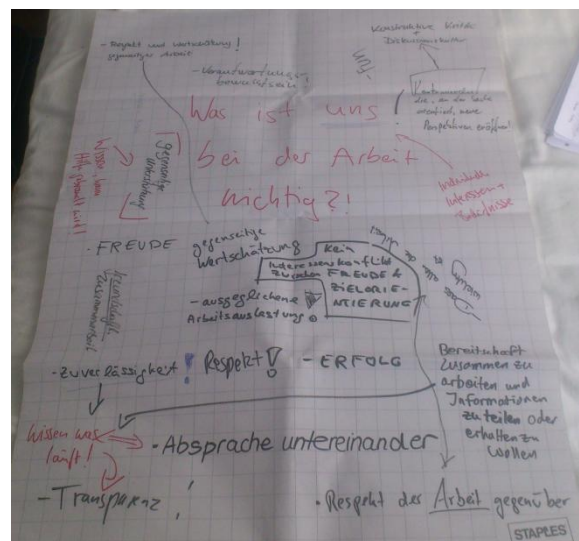 Konstruktive Kritik
+
Diskussionskultur
- Respekt und Wertschätzung!
gegenseitiger Arbeit
- Verantwortungs-
bewusstsein!
Kontroversen
die, an der Sache
orientiert, neue
Perspektiven eröffnen!
Was ist uns
bei der Arbeit
wichtig?!
gegenseitige
Unterstützung
Wissen, wenn
Hilfe gebraucht wird!
Individuelle
Interessen +
Bedürfnisse
- FREUDE
gegenseitige
Wertschätzung
Kein
Interessenkonflikt
zwischen FREUDE &
ZIELORIE-
NTIERUNG
- ausgeglichene
Arbeitsauslastung
freundschaftl.
Zusammenarbeit
- Zuverlässigkeit!
Respekt!
- ERFOLG
Bereitschaft
zusammen zu
arbeiten und
Informationen
zu teilen oder
erhalten zu
wollen
Wissen was
läuft!
- Absprache untereinander
- Transparenz!
- Respekt der Arbeit gegenüber
STAPLES